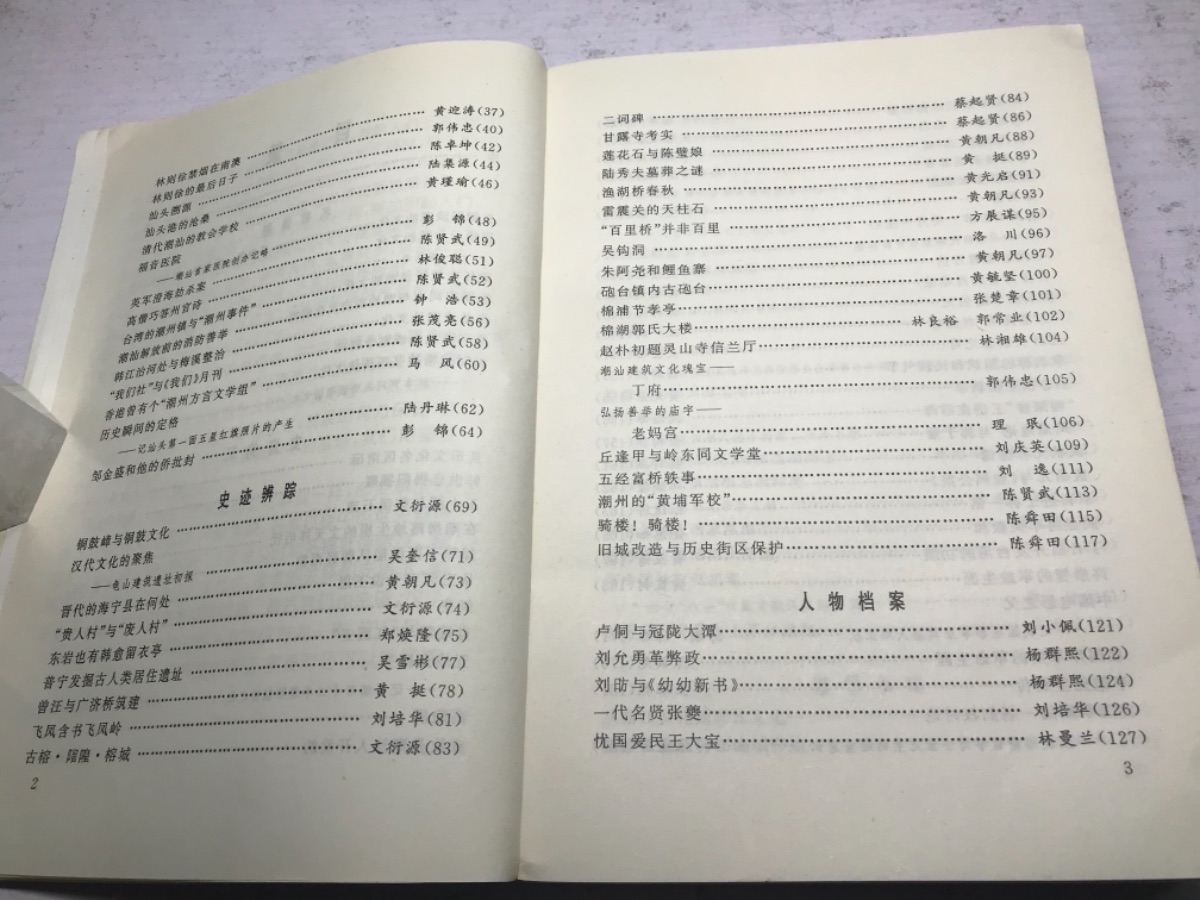 林则徐禁烟在南澳……黄迎涛(37)
林则徐的最后日子……郭伟忠(40)
汕头溯源……陈卓坤(42)
汕头港的沧桑……陆集源(44)
清代潮汕的教会学校……黄瑾瑜(46)
福音医院
——潮汕首家医院创办记略……彭 锦(48)
英军澄海劫杀案……陈贤武(49)
高僧巧答州官诗……林俊聪(51)
台湾的潮州镇与“潮州事件”……陈贤武(52)
潮汕解放前的消防善举……钟 浩(53)
韩江治河处与梅溪整治……张茂亮(56)
“我们社”与《我们》月刊……陈贤武(58)
香港曾有个“潮州方言文学组”……马 风(60)
历史瞬间的定格
——记汕头第一面五星红旗照片的产生……陆丹琳(62)
邹金盛和他的侨批封……彭 锦(64)
史迹辨踪
铜鼓嶂与铜鼓文化……文衍源(69)
汉代文化的聚焦
——龟山建筑遗址初探……吴奎信(71)
晋代的海宁县在何处……黄朝凡(73)
“贵人村”与“废人村”……文衍源(74)
东岩也有韩愈留衣亭……郑焕隆(75)
普宁发掘古人类居住遗址……吴雪彬(77)
曾汪与广济桥筑建……黄 挺(78)
飞凤含书飞凤岭……刘培华(81)
古榕· ·榕城……文衍源(83)
2
二词碑……蔡起贤(84)
甘露寺考实……蔡起贤(86)
莲花石与陈璧娘……黄朝凡(88)
陆秀夫墓葬之谜……黄 挺(89)
渔湖桥春秋……黄光启(91)
雷震关的天柱石……黄朝凡(93)
“百里桥”并非百里……方展谋(95)
吴钩洞……洛 川(96)
朱阿尧和鲤鱼寨……黄朝凡(97)
砲台镇内古砲台……黄毓坚(100)
棉浦节孝亭……张楚章(101)
棉湖郭氏大楼……林良裕 郭常业(102)
赵朴初题灵山寺信兰厅……林湘雄(104)
潮汕建筑文化瑰宝——
丁府……郭伟忠(105)
弘扬善举的庙宇——
老妈宫……理 珉(106)
丘逢甲与岭东同文学堂……刘庆英(109)
五经富桥轶事……刘 逸(111)
潮州的“黄埔军校”……陈贤武(113)
骑楼！骑楼！……陈舜田(115)
旧城改造与历史街区保护……陈舜田(117)
人物档案
卢侗与冠陇大潭……刘小佩(121)
刘允勇革弊政……杨群熙(122)
刘昉与《幼幼新书》……杨群熙(124)
一代名贤张夔……刘培华(126)
忧国爱民王大宝……林曼兰(127)
3